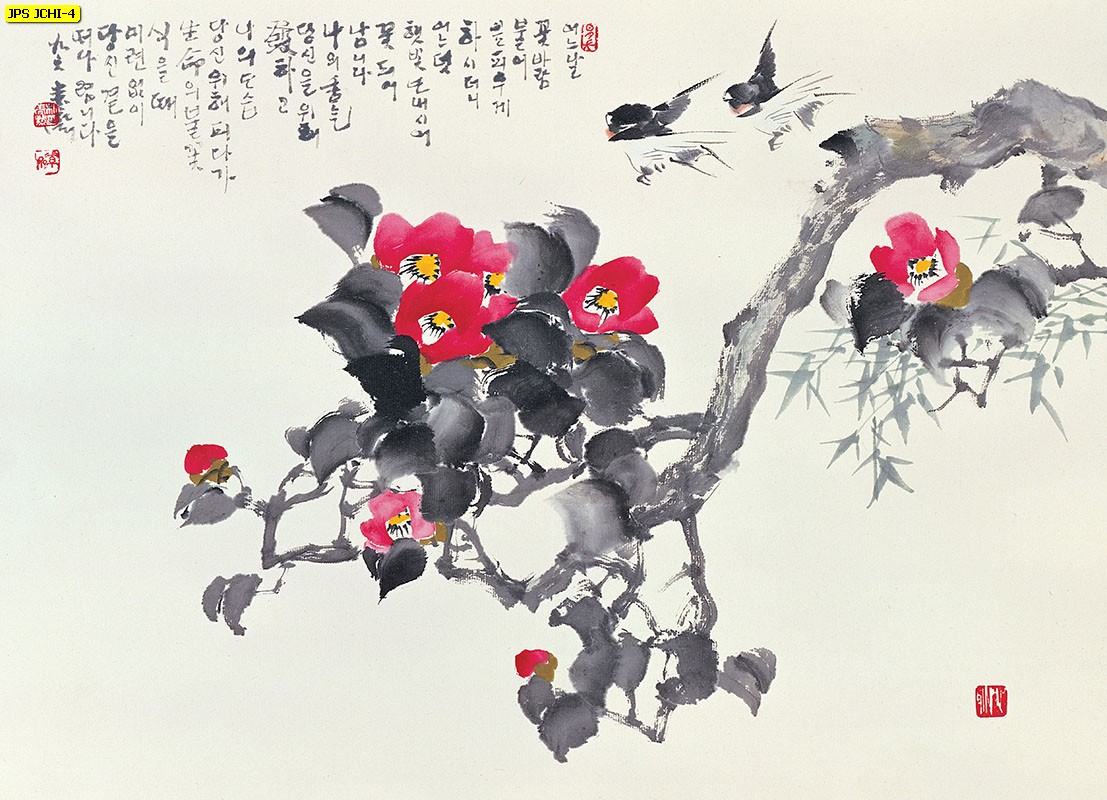 JPS JCHI-4
어느날
꽃바람
불어
잎피우게
하시더니
어느덧
햇빛 보내시어
꽃 되어
납니다
나의 춤는
당신을 위해
發하고
나의 모습
당신 위해 피다가
生命의 불꽃
식을 때
미련 없이
당신 곁을
떠나 갑니다